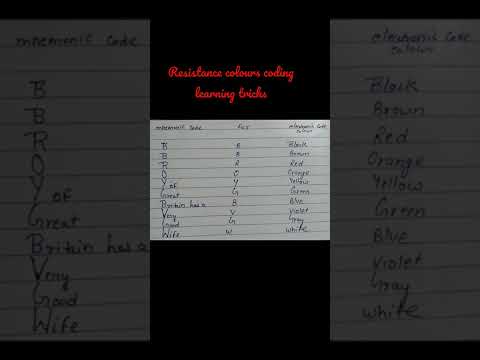 Resistance colours coding
learning tricks
mnemonic code
B
B
R
O
Y of
Great
Britain has a
Very
Good
Wife
B
B
R
O
Y
G
B
V
G
W
colours
Black
Brown
Red
Orange
Yellow
Green
Blue
Violet
Gray
White
mnemonic code
B
B
R
O
Y of
Great
Britain has a
Very
Good
Wife
code
colours
Black
Brown
Red
Orange
Yellow
Green
Blue
Violet
Gray
White